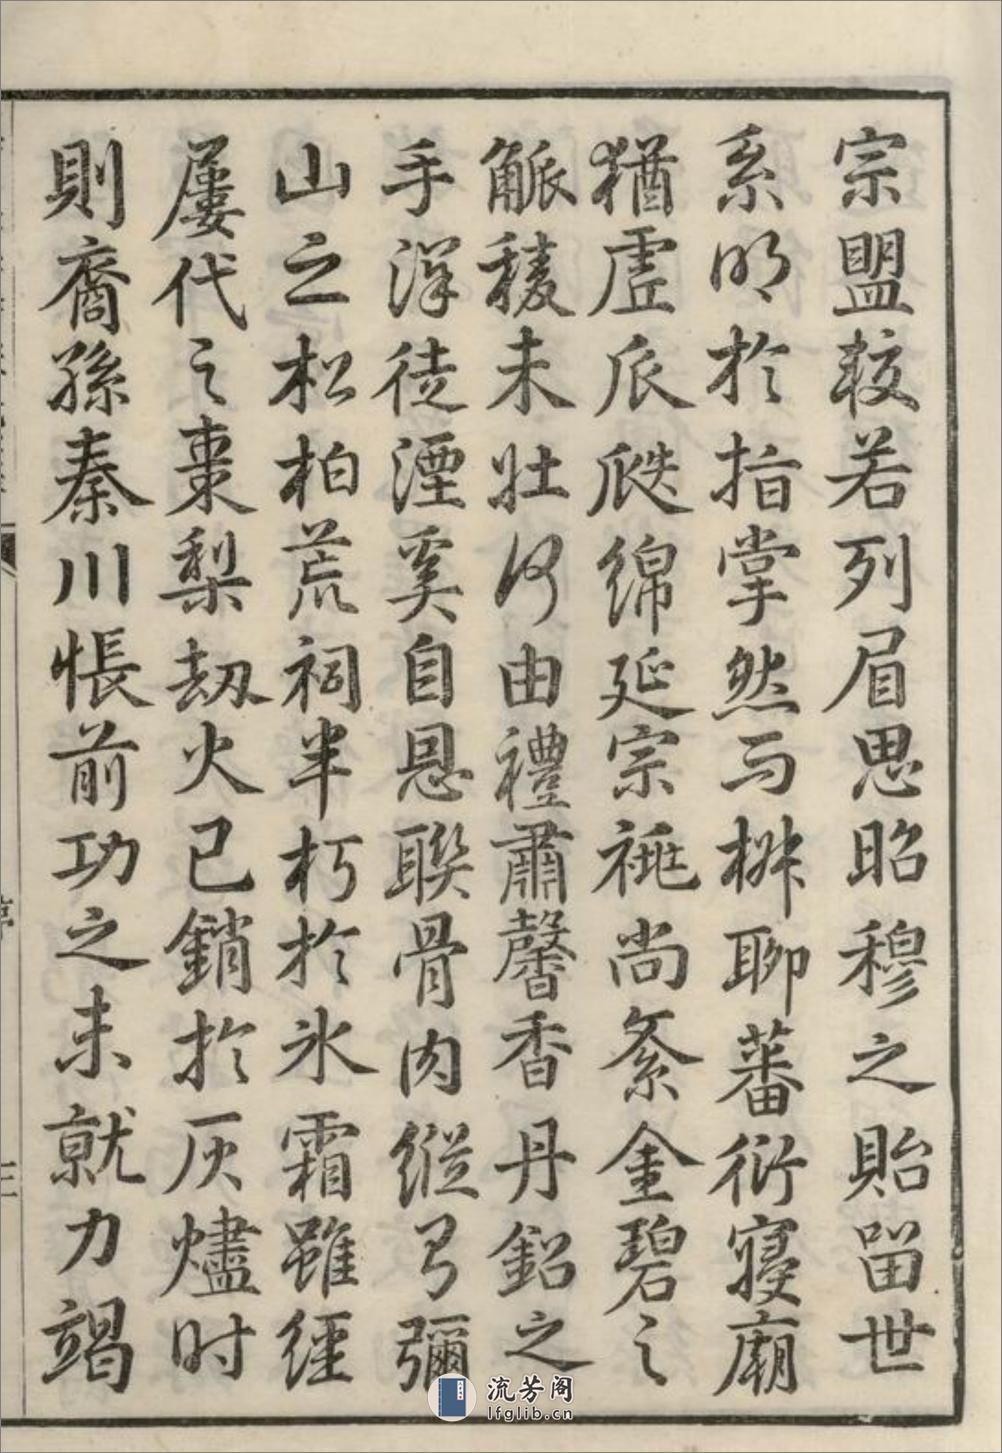 宗盟較若列眉思昭穆之貽畱世
系明於指掌然而椒聊蕃衍寝廟
猶虛瓜瓞綿延宗祧尚紊金碧之
觚稜未壯何由禮肅馨香丹鉛之
手渾徒湮奚自恩聯骨肉縱弓彌
山之松柏荒祠半朽於氷霜雖經
屢代之棗梨劫火已銷於灰燼时
則裔孫秦川悵前功之未就力竭
流芳阁
lfglib.cn